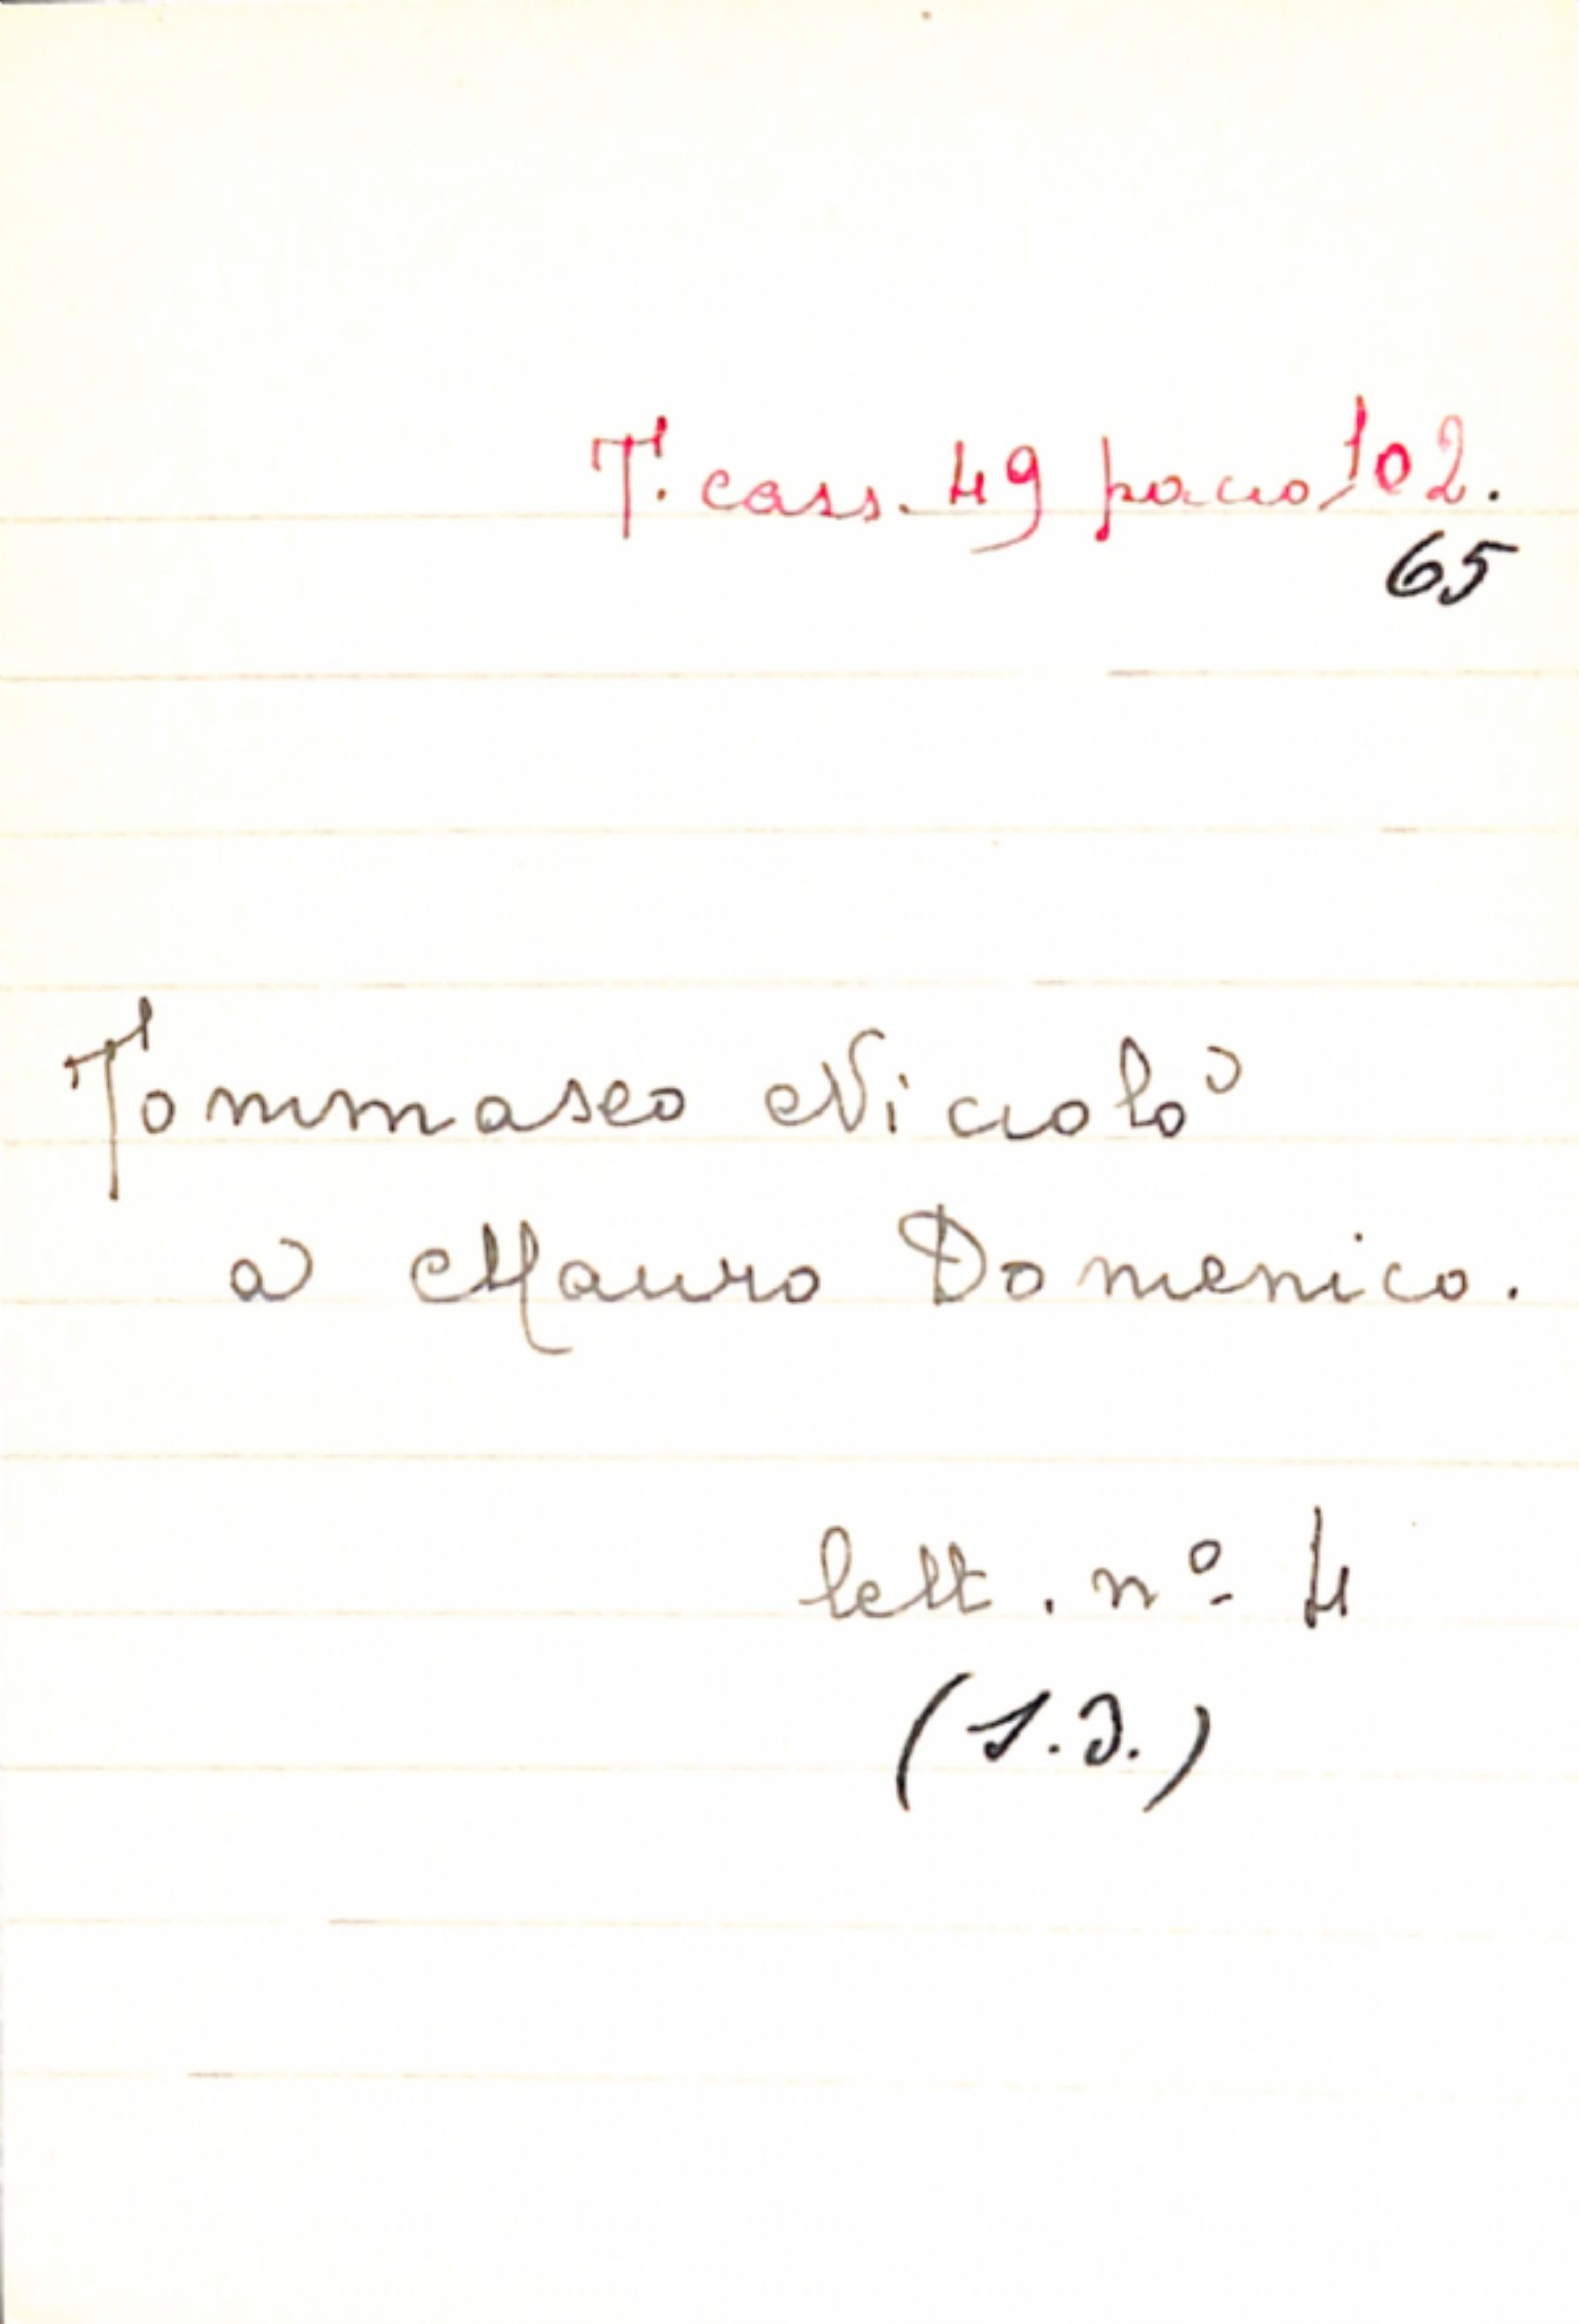 T. cass. 49 pacco 102.
65
Tommaseo Niccolò
a Mauro Domenico.
lett. nº 4
(s.d.)